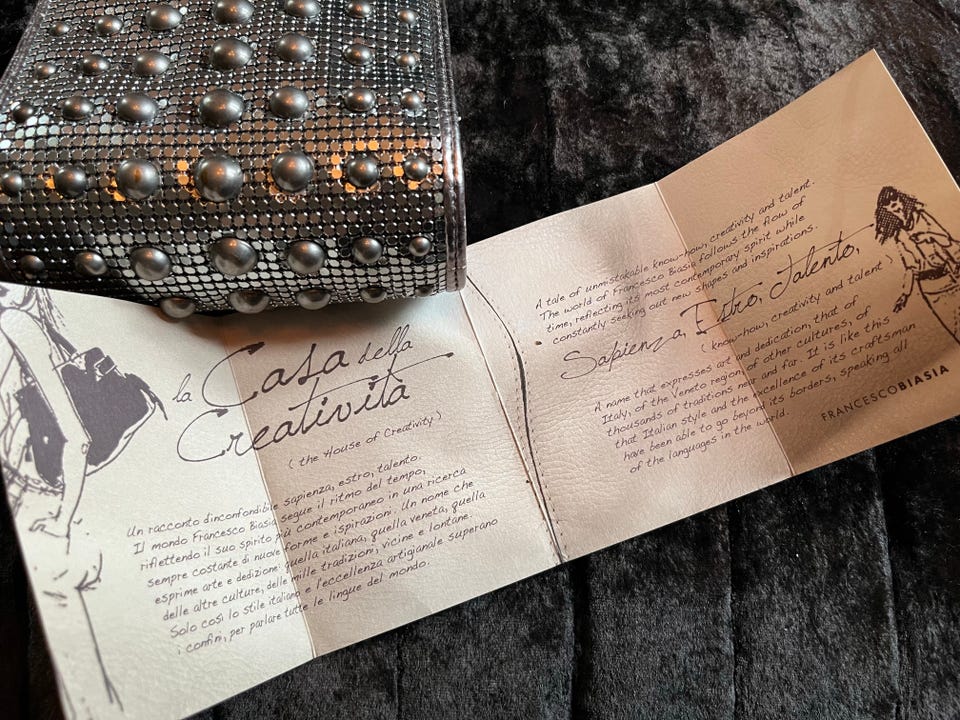 la Casa della
Creatività
( the House of Creativity )
Un racconto dinconfondibile sapienza, estro, talento.
Il mondo Francesco Biasia segue il ritmo del tempo,
riflettendo il suo spirito più contemporaneo in una ricerca
sempre costante di nuove forme e ispirazioni. Un nome che
esprime arte e dedizione: quella italiana, quella veneta, quella
delle altre culture, delle mille tradizioni, vicine e lontane.
Solo così lo stile italiano e l'eccellenza artigianale superano
i confini, per parlare tutte le lingue del mondo.
A tale of unmistakable know-how, creativity and talent.
The world of Francesco Biasia follows the flow of
time, reflecting its most contemporary spirit while
constantly seeking out new shapes and inspirations.
Sapienza, Estro, Talento,
( know-how, creativity and talent )
A name that expresses art and dedication, that of
Italy, of the Veneto region, of other cultures, of
thousands of traditions near and far. It is like this
that Italian style and the excellence of its craftsman
have been able to go beyond its borders, speaking all
of the languages in the world.
FRANCESCOBIASIA